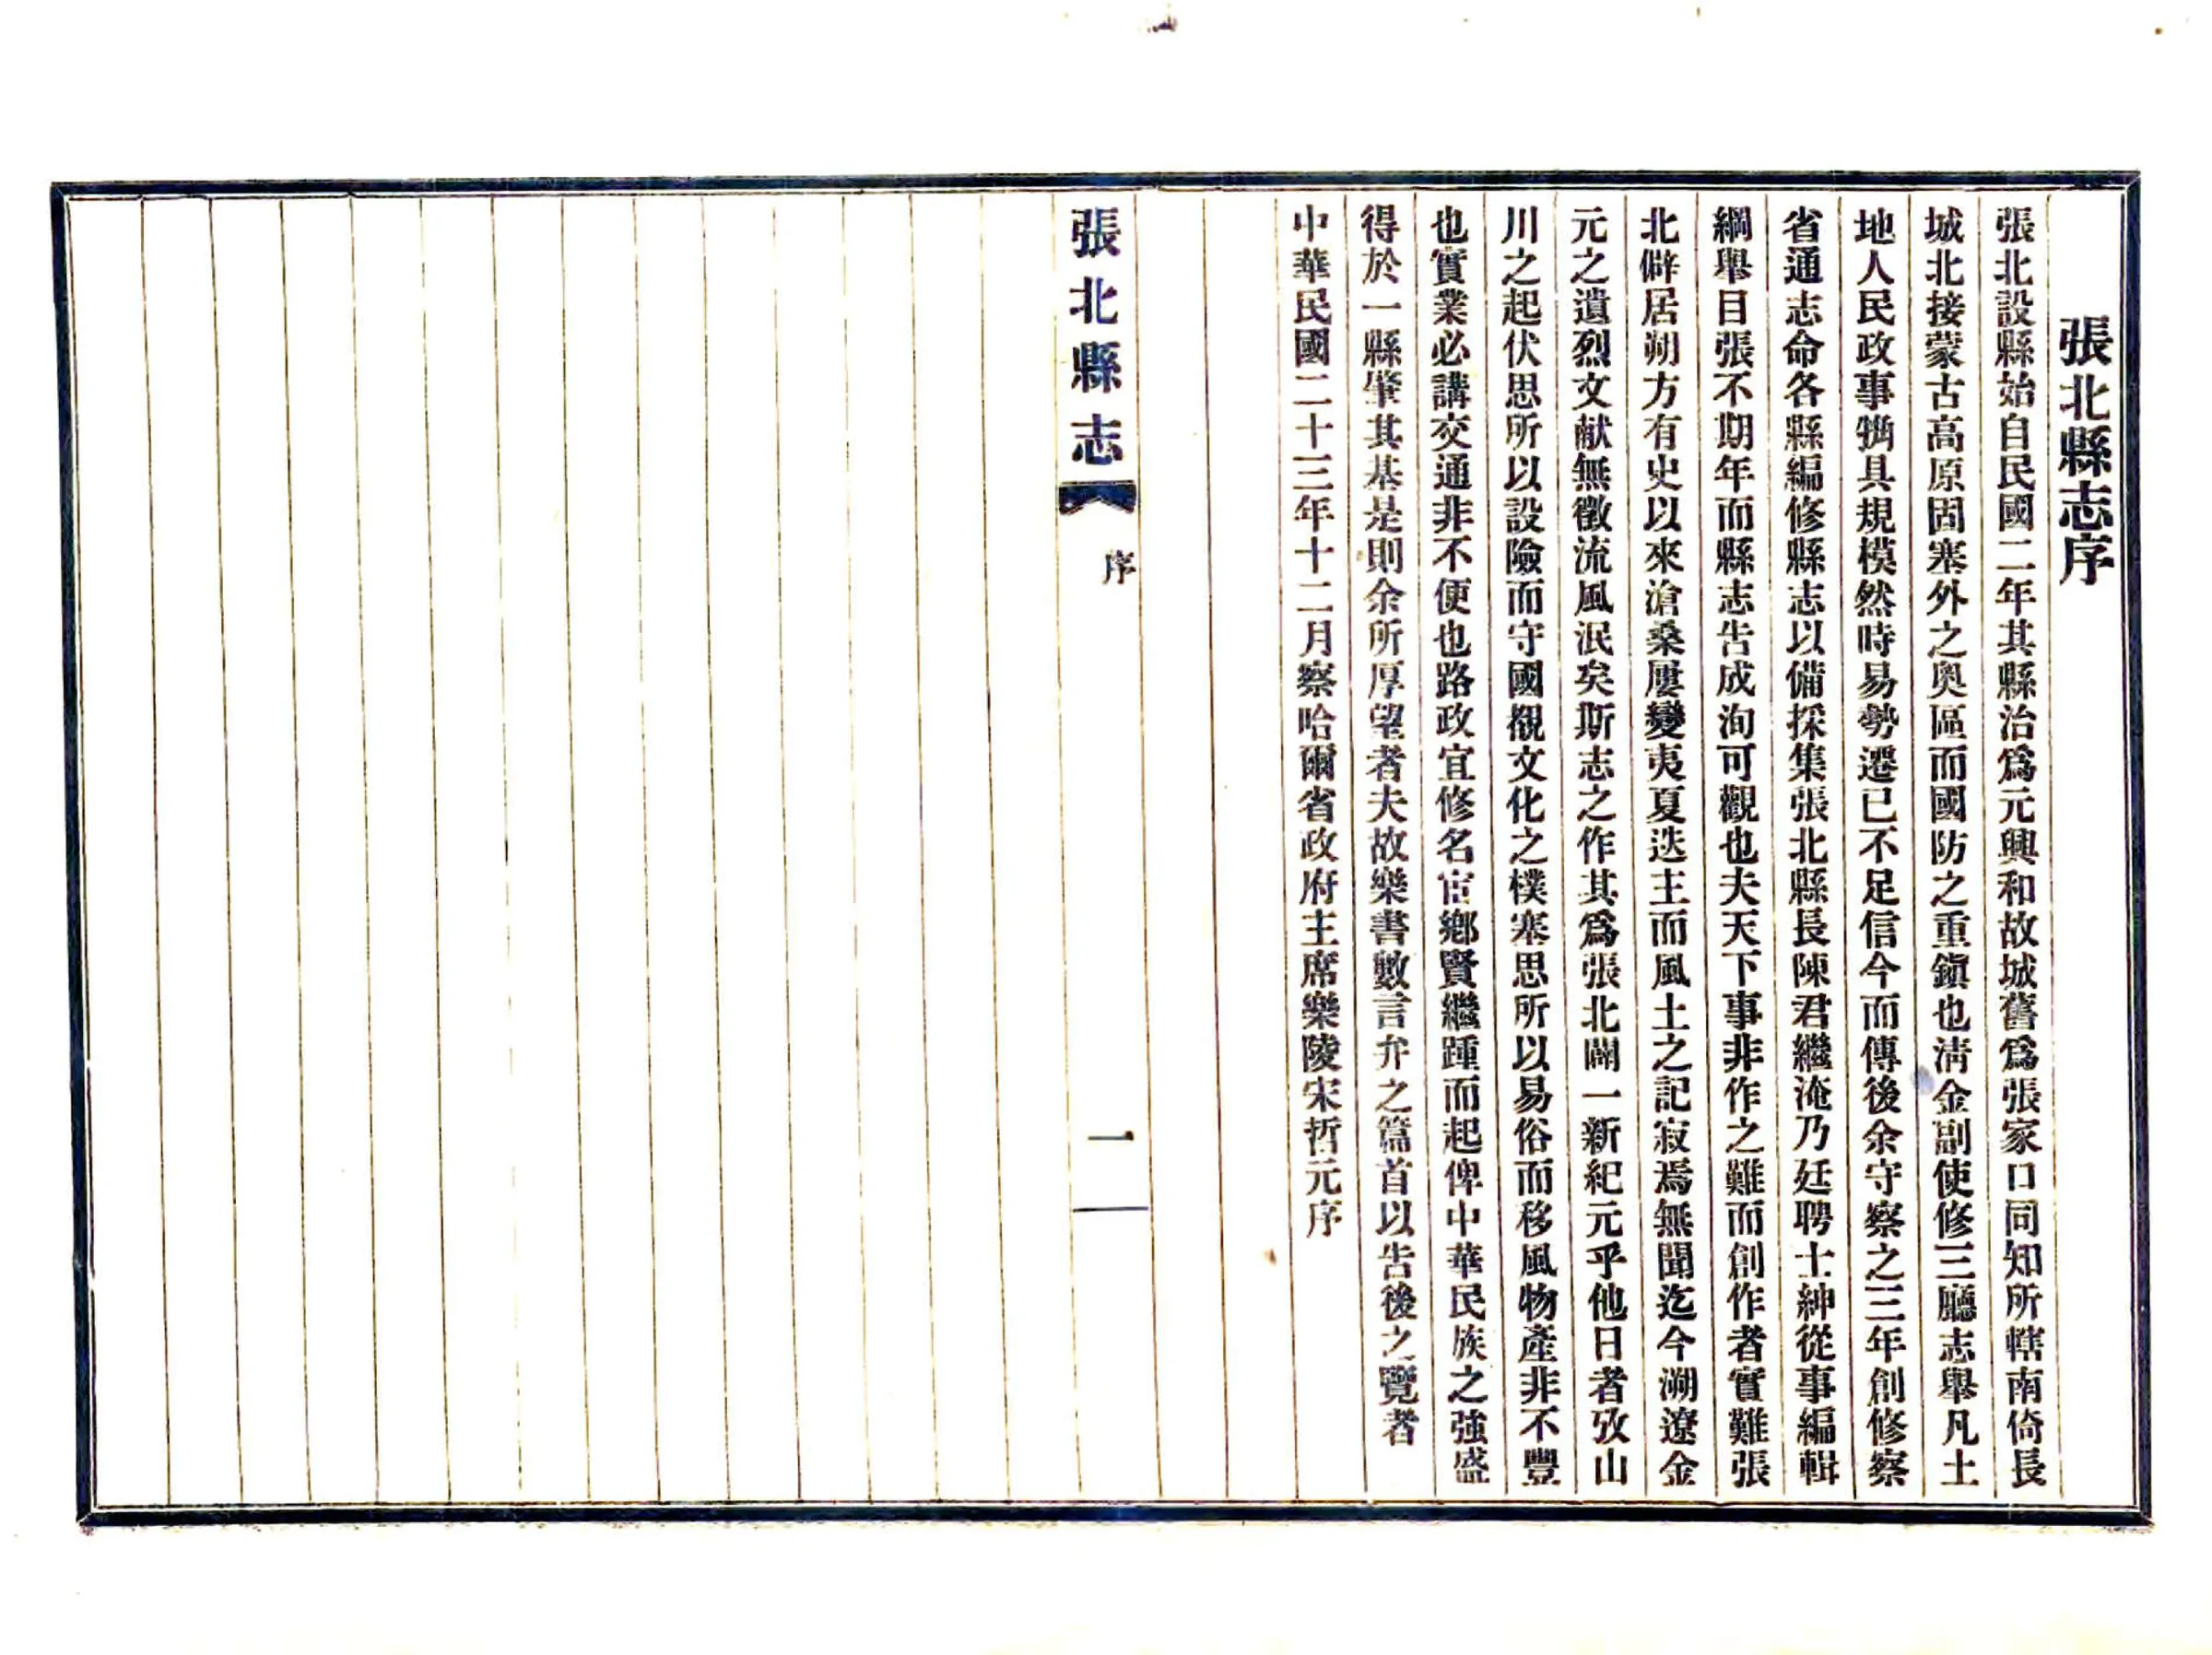 張北縣志序
張北設縣始自民國二年其縣治爲元興和故城舊爲張家口同知所轄南倚長
城北接蒙古高原固塞外之奥區而國防之重鎭也淸金副使修三廳志舉凡土
地人民政事犕具規模然時易勢遷已不足信今而傳後余守察之三年創修察
省通志命各縣編修縣志以備採集張北縣長陳君繼淹乃廷聘士紳從事編輯
綱舉目張不期年而縣志告成洵可觀也夫天下事非作之難而創作者實難張
北僻居朔方有史以來滄桑屢變夷夏迭主而風土之記寂焉無聞迄今溯遼金
元之遺烈文献無徵流風泯矣斯志之作其爲張北闢一新紀元乎他日者攷山
川之起伏思所以設險而守國覩文化之樸塞思所以易俗而移風物產非不豐
也實業必講交通非不便也路政宜修名宦鄕賢繼踵而起俾中華民族之強盛
得於一縣肇其基是則余所厚望者夫故樂書數言弁之篇首以告後之覽者
中華民國二十三年十二月察哈爾省政府主席樂陵宋哲元序
張北縣志
序
一